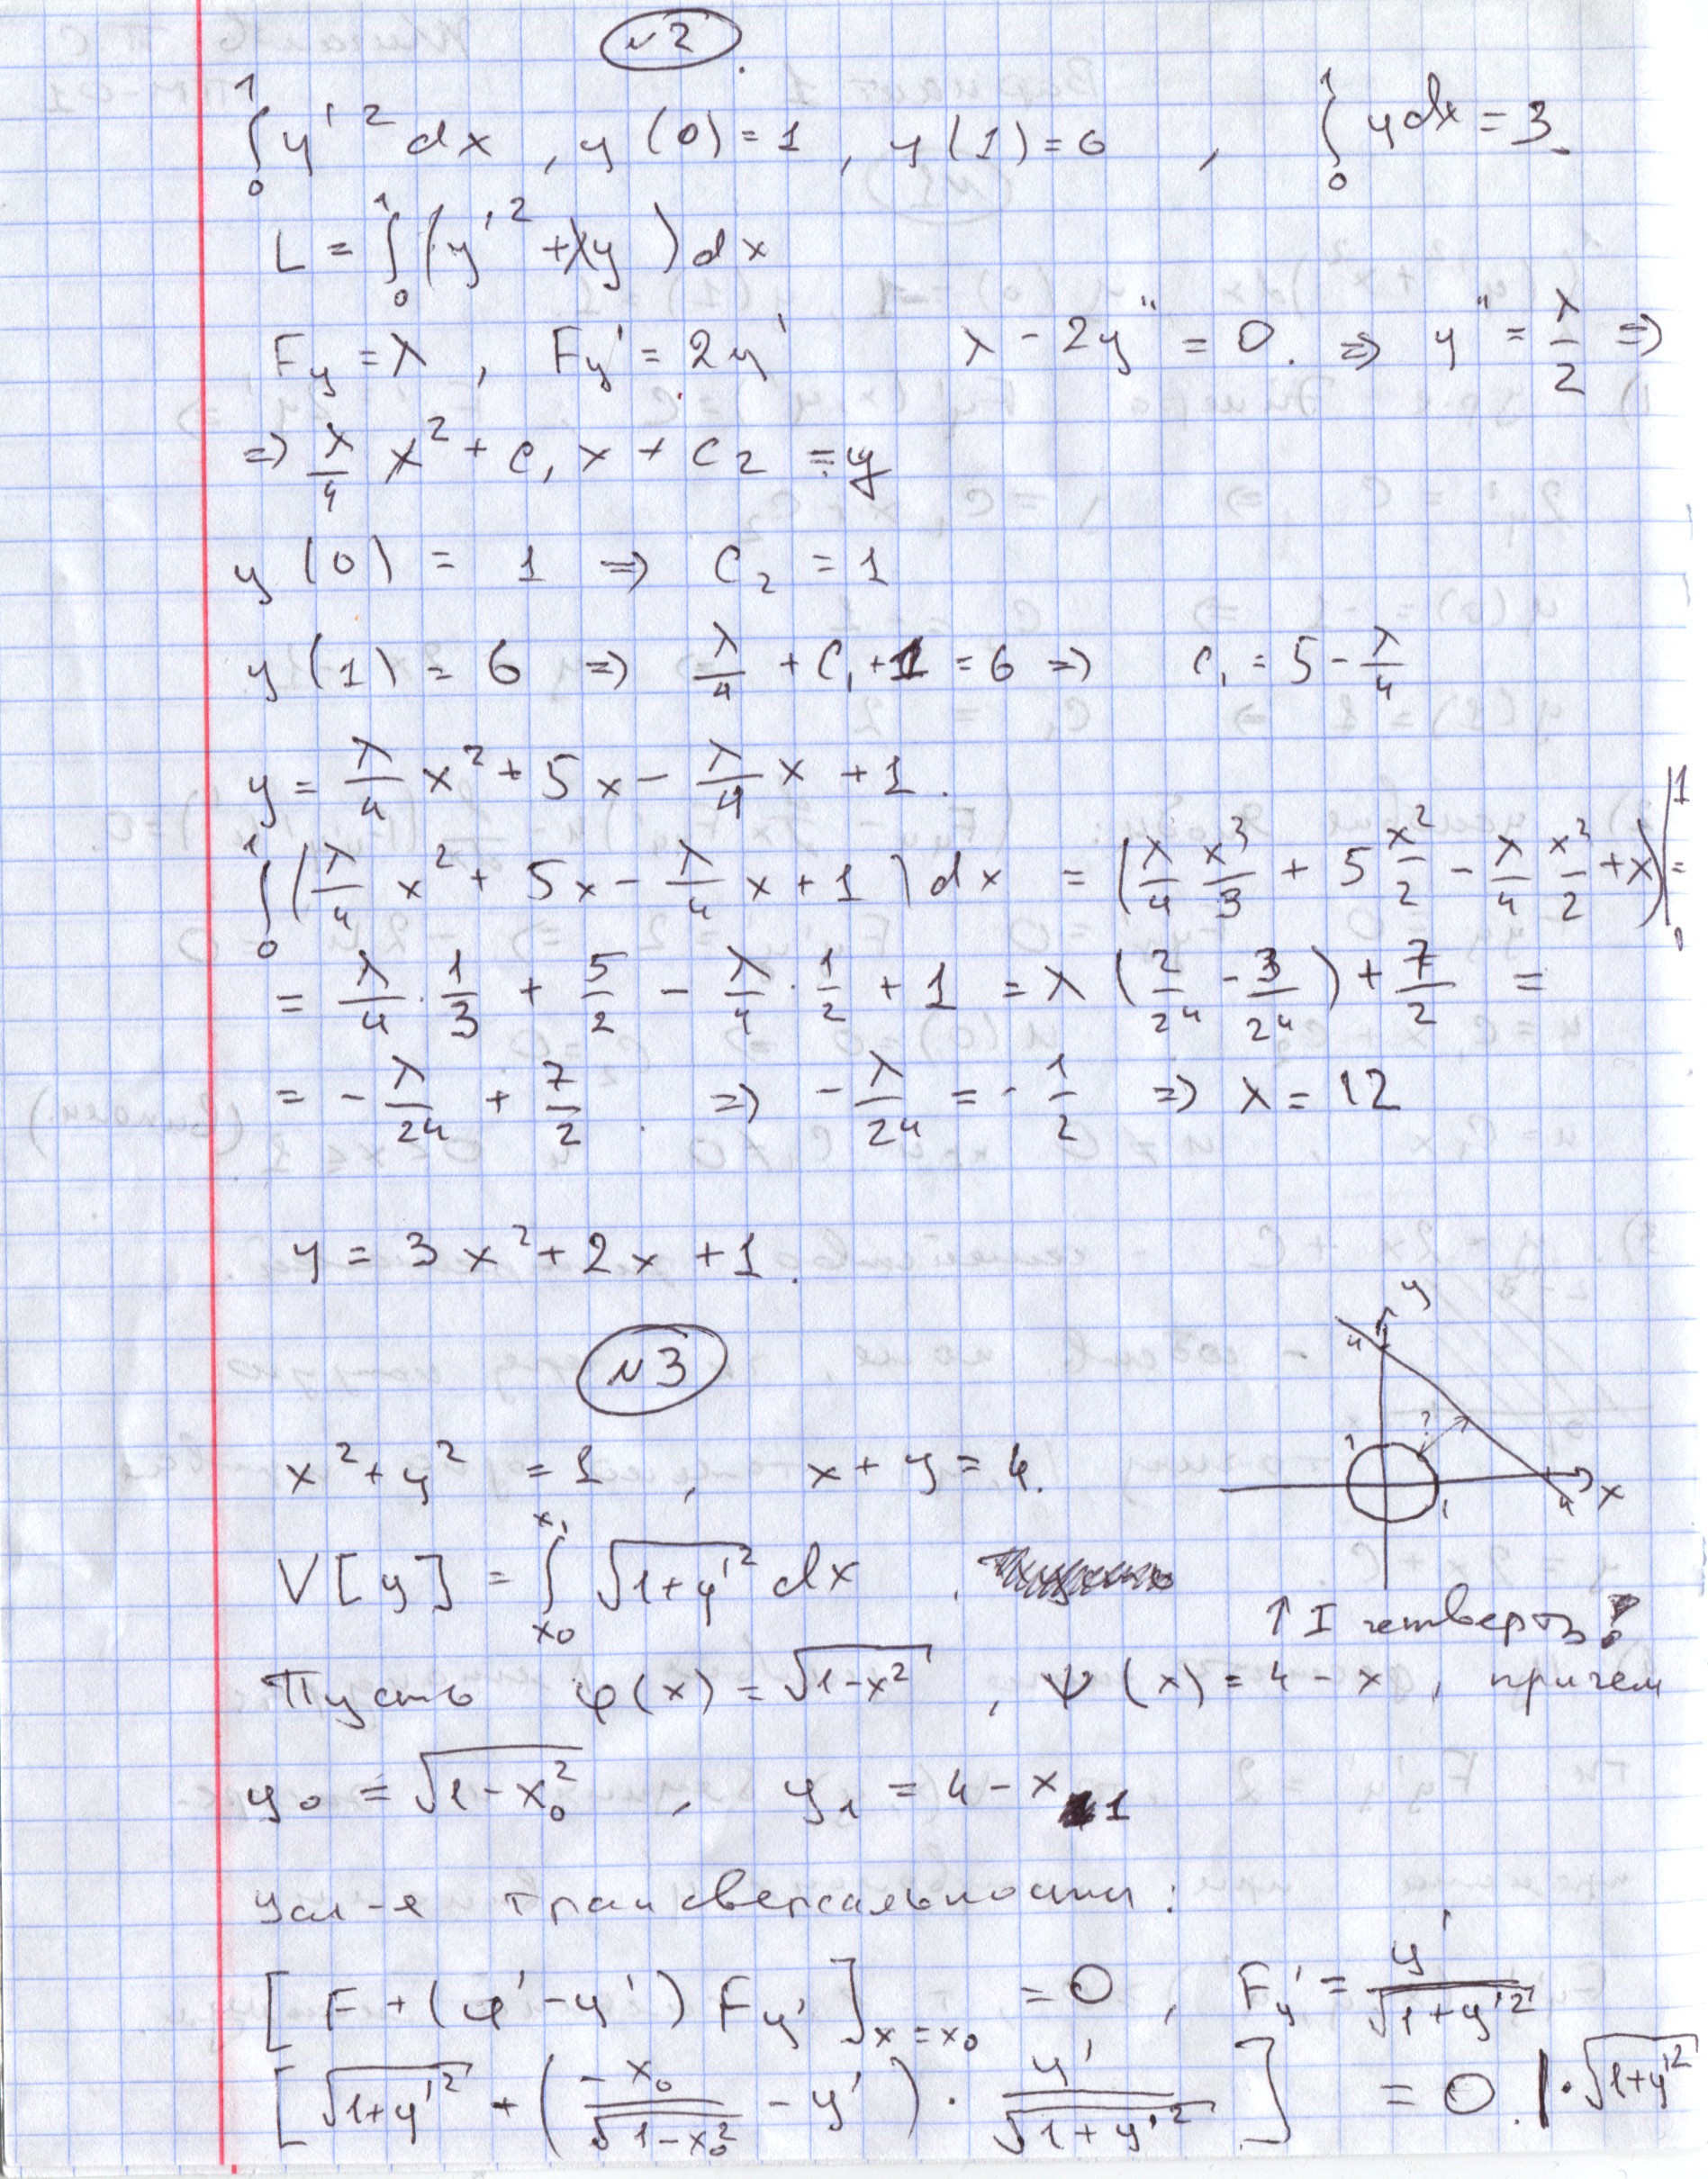 №2.
∫₀¹ y'² dx , y(0)=1 , y(1)=6 , ∫₀¹ ydx = 3.
L = ∫₀¹ (y'² + λy) dx
Fy = λ , Fy' = 2y' λ - 2y'' = 0. ⇒ y'' = λ/2 ⇒
⇒ λ/4 x² + C₁x + C₂ = y
y(0) = 1 ⇒ C₂ = 1
y(1) = 6 ⇒ λ/4 + C₁ + 1 = 6 ⇒ C₁ = 5 - λ/4
y = λ/4 x² + 5x - λ/4 x + 1.
∫₀¹ (λ/4 x² + 5x - λ/4 x + 1) dx = (λ/4 x³/3 + 5 x²/2 - λ/4 x²/2 + x)|₀¹ =
= λ/4 · 1/3 + 5/2 - λ/4 · 1/2 + 1 = λ (2/24 - 3/24) + 7/2 =
= - λ/24 + 7/2 . ⇒ - λ/24 = - 1/2 ⇒ λ = 12
y = 3x² + 2x + 1.
№3
y
4
?
1
1
4
x
x² + y² = 1 , x + y = 4.
V[y] = ∫_{x₀}^{x₁} √(1+y'²) dx .
↑ I четверть!
Пусть φ(x) = √(1-x²) , ψ(x) = 4 - x , причем
y₀ = √(1-x₀²) , y₁ = 4 - x₁
Усл-я трансверсальности:
[F + (φ' - y') Fy']_{x=x₀} = 0 , Fy' = y'/√(1+y'²)
[√(1+y'²) + (-x₀/√(1-x₀²) - y') · y'/√(1+y'²)] = 0. | · √(1+y'²)